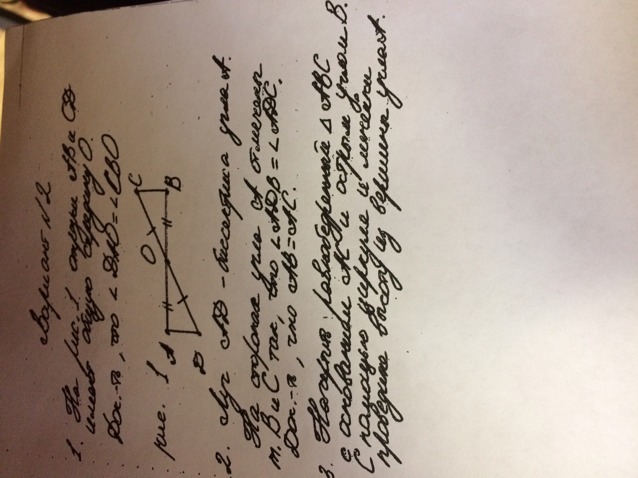 Вариант N 2
1. На рис. 1 отрезки АВ и CD
имеют общую середину О.
Док.-ть, что ∠DAO = ∠CBO
рис. 1
А
О
С
D
В
2. Луч AD - биссектриса угла А.
На сторонах угла А отмечены
т. В и С так, что ∠ADB = ∠ADC.
Док.-ть, что АВ = АС.
3. Начерти равнобедренный △ АВС
с основанием АС и острым углом В.
С помощью циркуля и линейки
проведите высоту из вершины угла А.